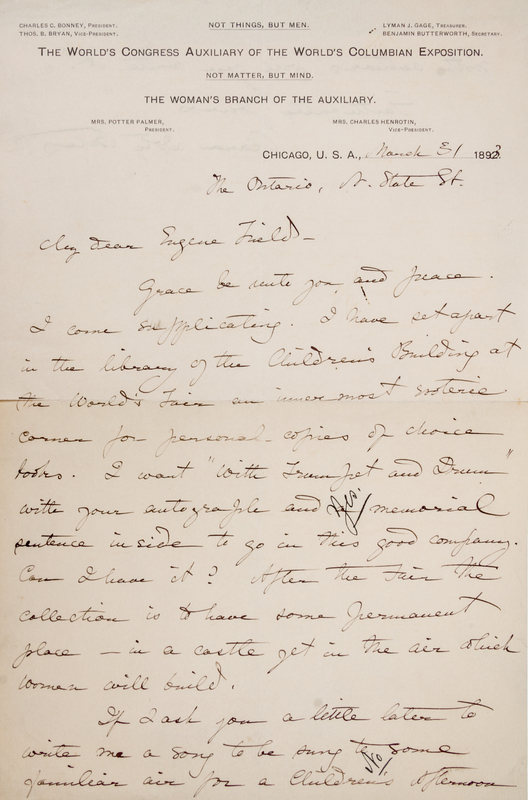 CHARLES C. BONNEY, PRESIDENT.
THOS. B. BRYAN, VICE-PRESIDENT.
NOT THINGS, BUT MEN.
LYMAN J. GAGE, TREASURER.
BENJAMIN BUTTERWORTH, SECRETARY.
THE WORLD'S CONGRESS AUXILIARY OF THE WORLD'S COLUMBIAN EXPOSITION.
NOT MATTER, BUT MIND.
THE WOMAN'S BRANCH OF THE AUXILIARY.
MRS. POTTER PALMER,
PRESIDENT.
MRS. CHARLES HENROTIN,
VICE-PRESIDENT.
CHICAGO, U. S. A., March 31 1893.
The Ontario, N. State St.
My dear Eugene Field—
Grace be unto you and peace.
I come supplicating. I have set apart
in the library of the Children's Building at
the World's Fair an inner most esoteric
corner for personal copies of choice
books. I want "With Trumpet and Drum"
with your autograph and memorial
Yes.
sentence inside to go in this good company.
Can I have it? After the Fair the
collection is to have some permanent
place — in a castle yet in the air which
women will build.
If I ask you a little later to
write me a song to be sung to some
No
familiar air for a Children's Afternoon